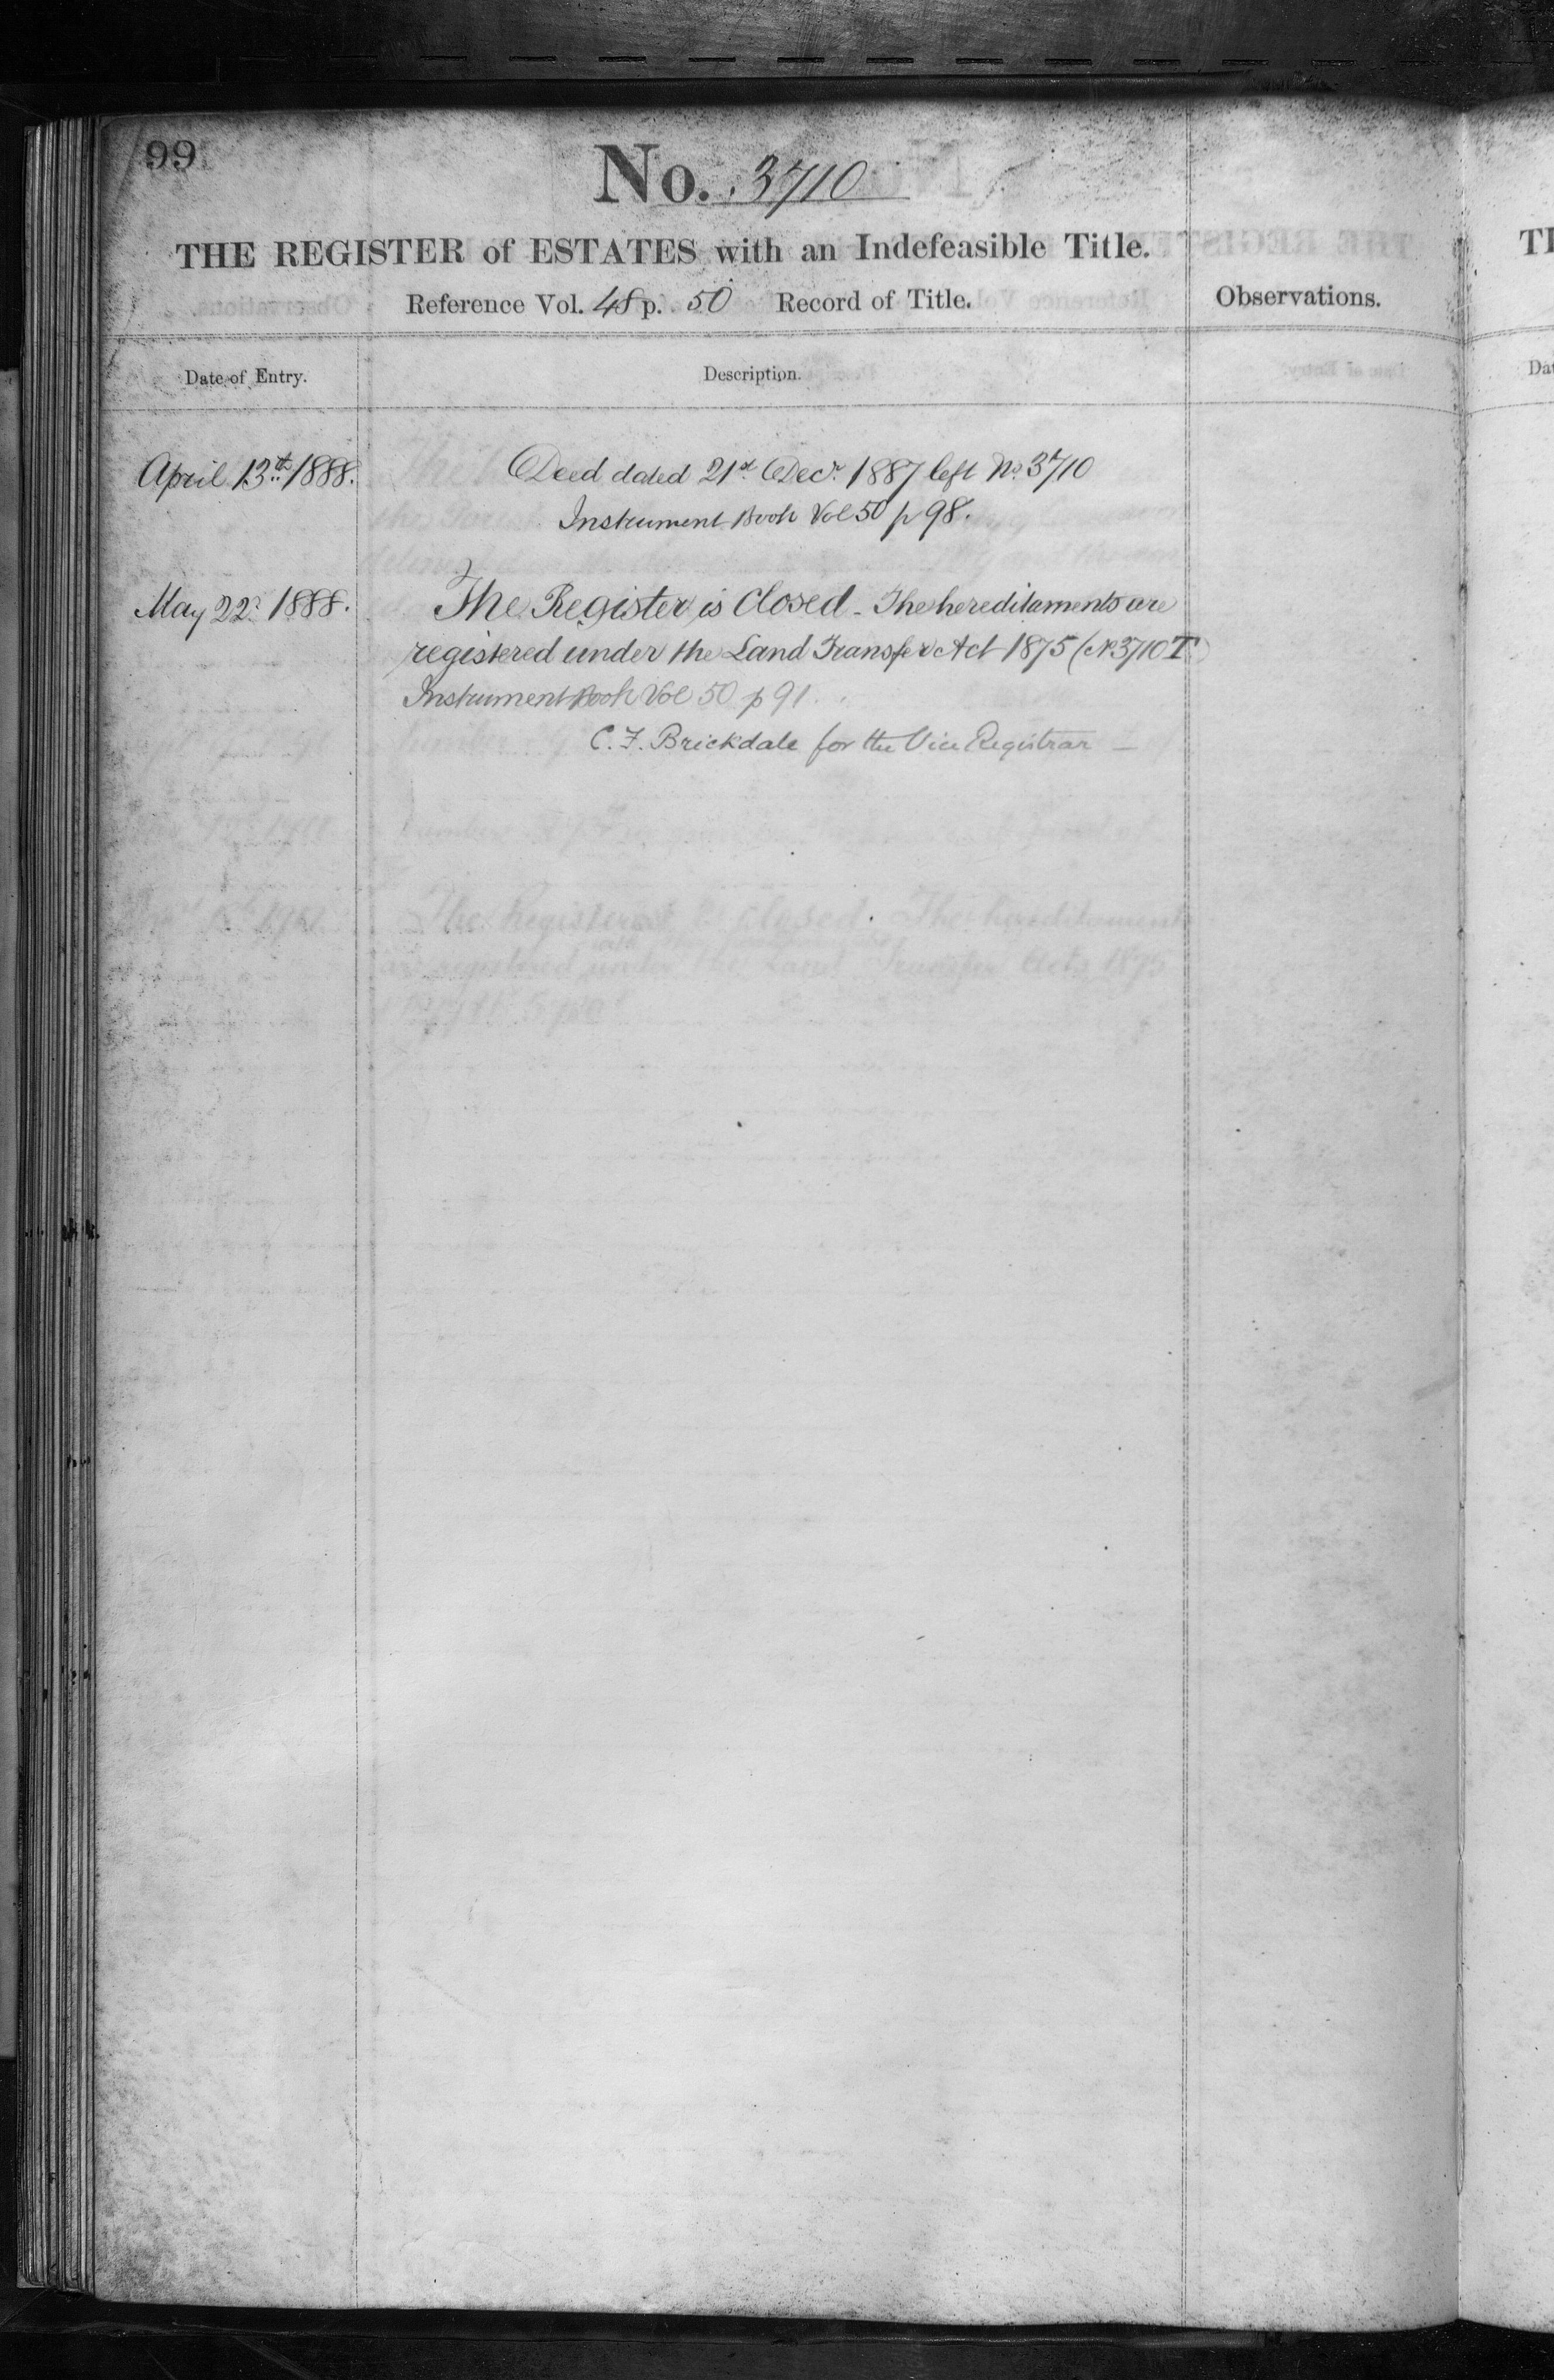 99
No. 3710
THE REGISTER of ESTATES with an Indefeasible Title.
Reference Vol. 48 p. 50 Record of Title.
Observations.
Date of Entry.
Description.
April 13th 1888.
Deed dated 21st Decr 1887 left No. 3710
Instrument Book Vol 50 p 98.
May 22d 1888.
The Register is Closed - The hereditaments are
registered under the Land Transfer Act 1875 (No. 3710 T)
Instrument Book Vol 50 p 91.
C. F. Brickdale for the Vice Registrar —